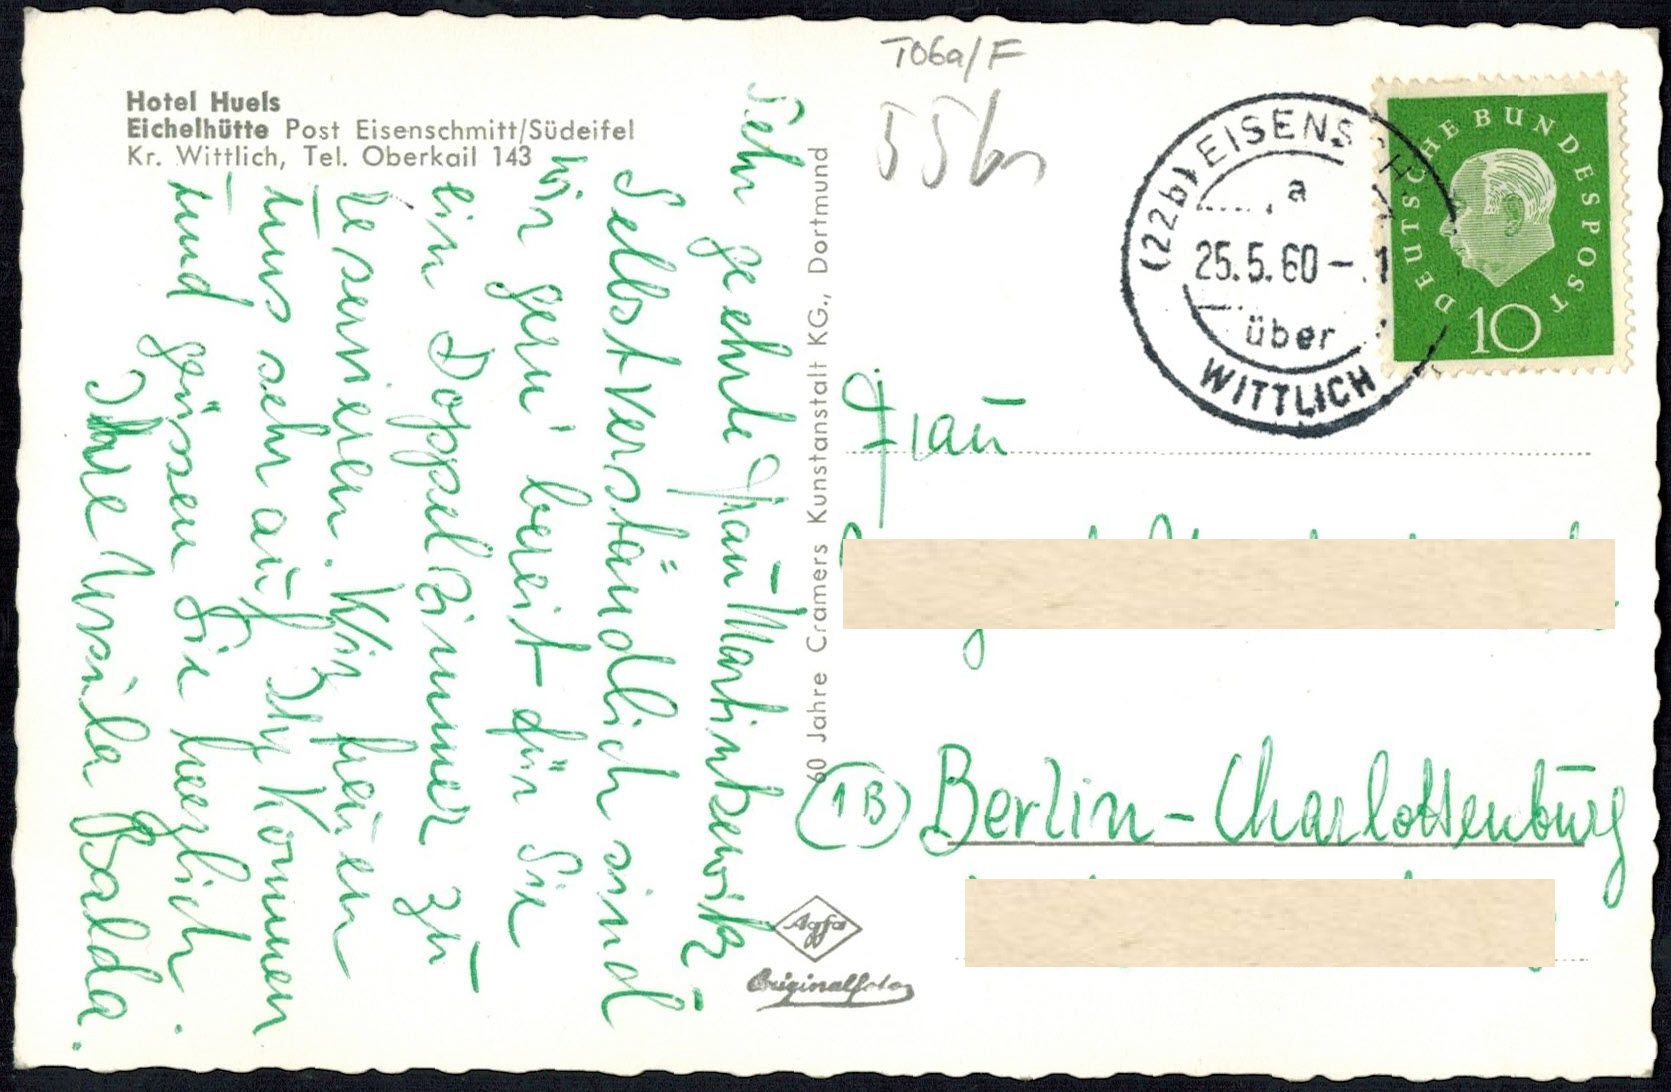 Hotel Huels
Eichelhütte Post Eisenschmitt/Südeifel
Kr. Wittlich, Tel. Oberkail 143
Sehr geehrte Frau Martinkewitz
Selbstverständlich sind
wir gern' bereit für Sie
ein Doppelzimmer zu
reservieren. Wir freuen
uns sehr auf Ihr Kommen
und grüssen Sie herzlich.
Ihre Ursula Balda.
60 Jahre Cramers Kunstanstalt KG., Dortmund
T06a/F
(22b) EISENSCH
a
25.5.60-.1
über
WITTLICH
DEUTSCHE BUNDESPOST
10
Frau
(1B) Berlin-Charlottenburg
Agfa
Originalfoto